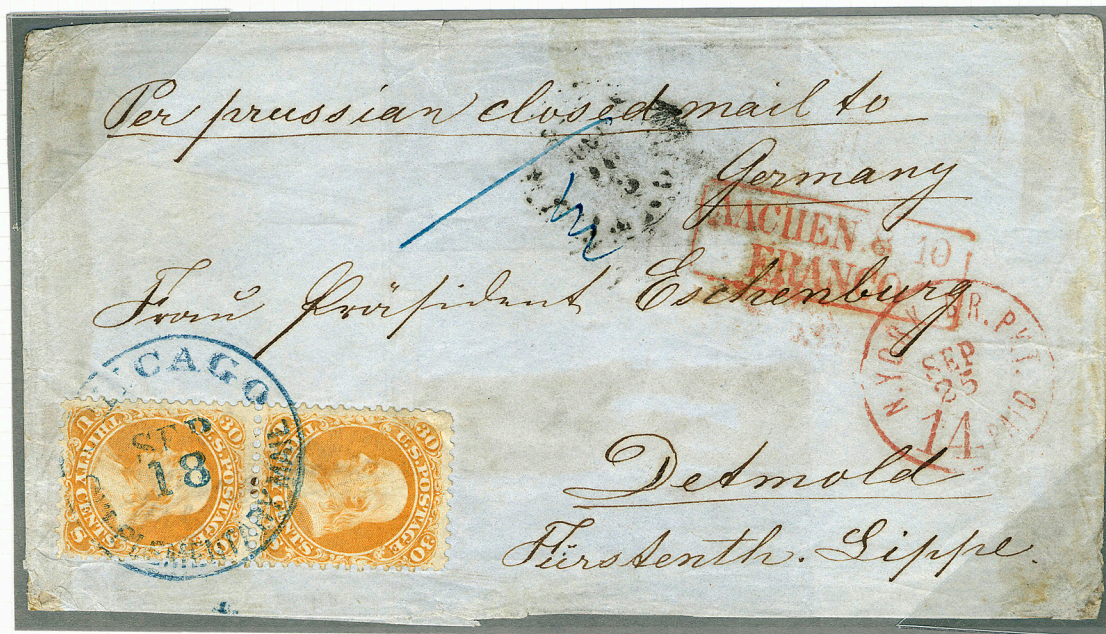 Per prussian closed mail to
Germany
AACHEN. 10
FRANCO
Frau Präsident Eschenburg
N. YORK BR. PKT.
SEP
25
14
PAID
CHICAGO
SEP
18
SUPPLEMENTARY MAIL
30 U.S. POSTAGE 30
THIRTY CENTS
U.S. POSTAGE 30
Detmold
Fürstenth. Lippe.